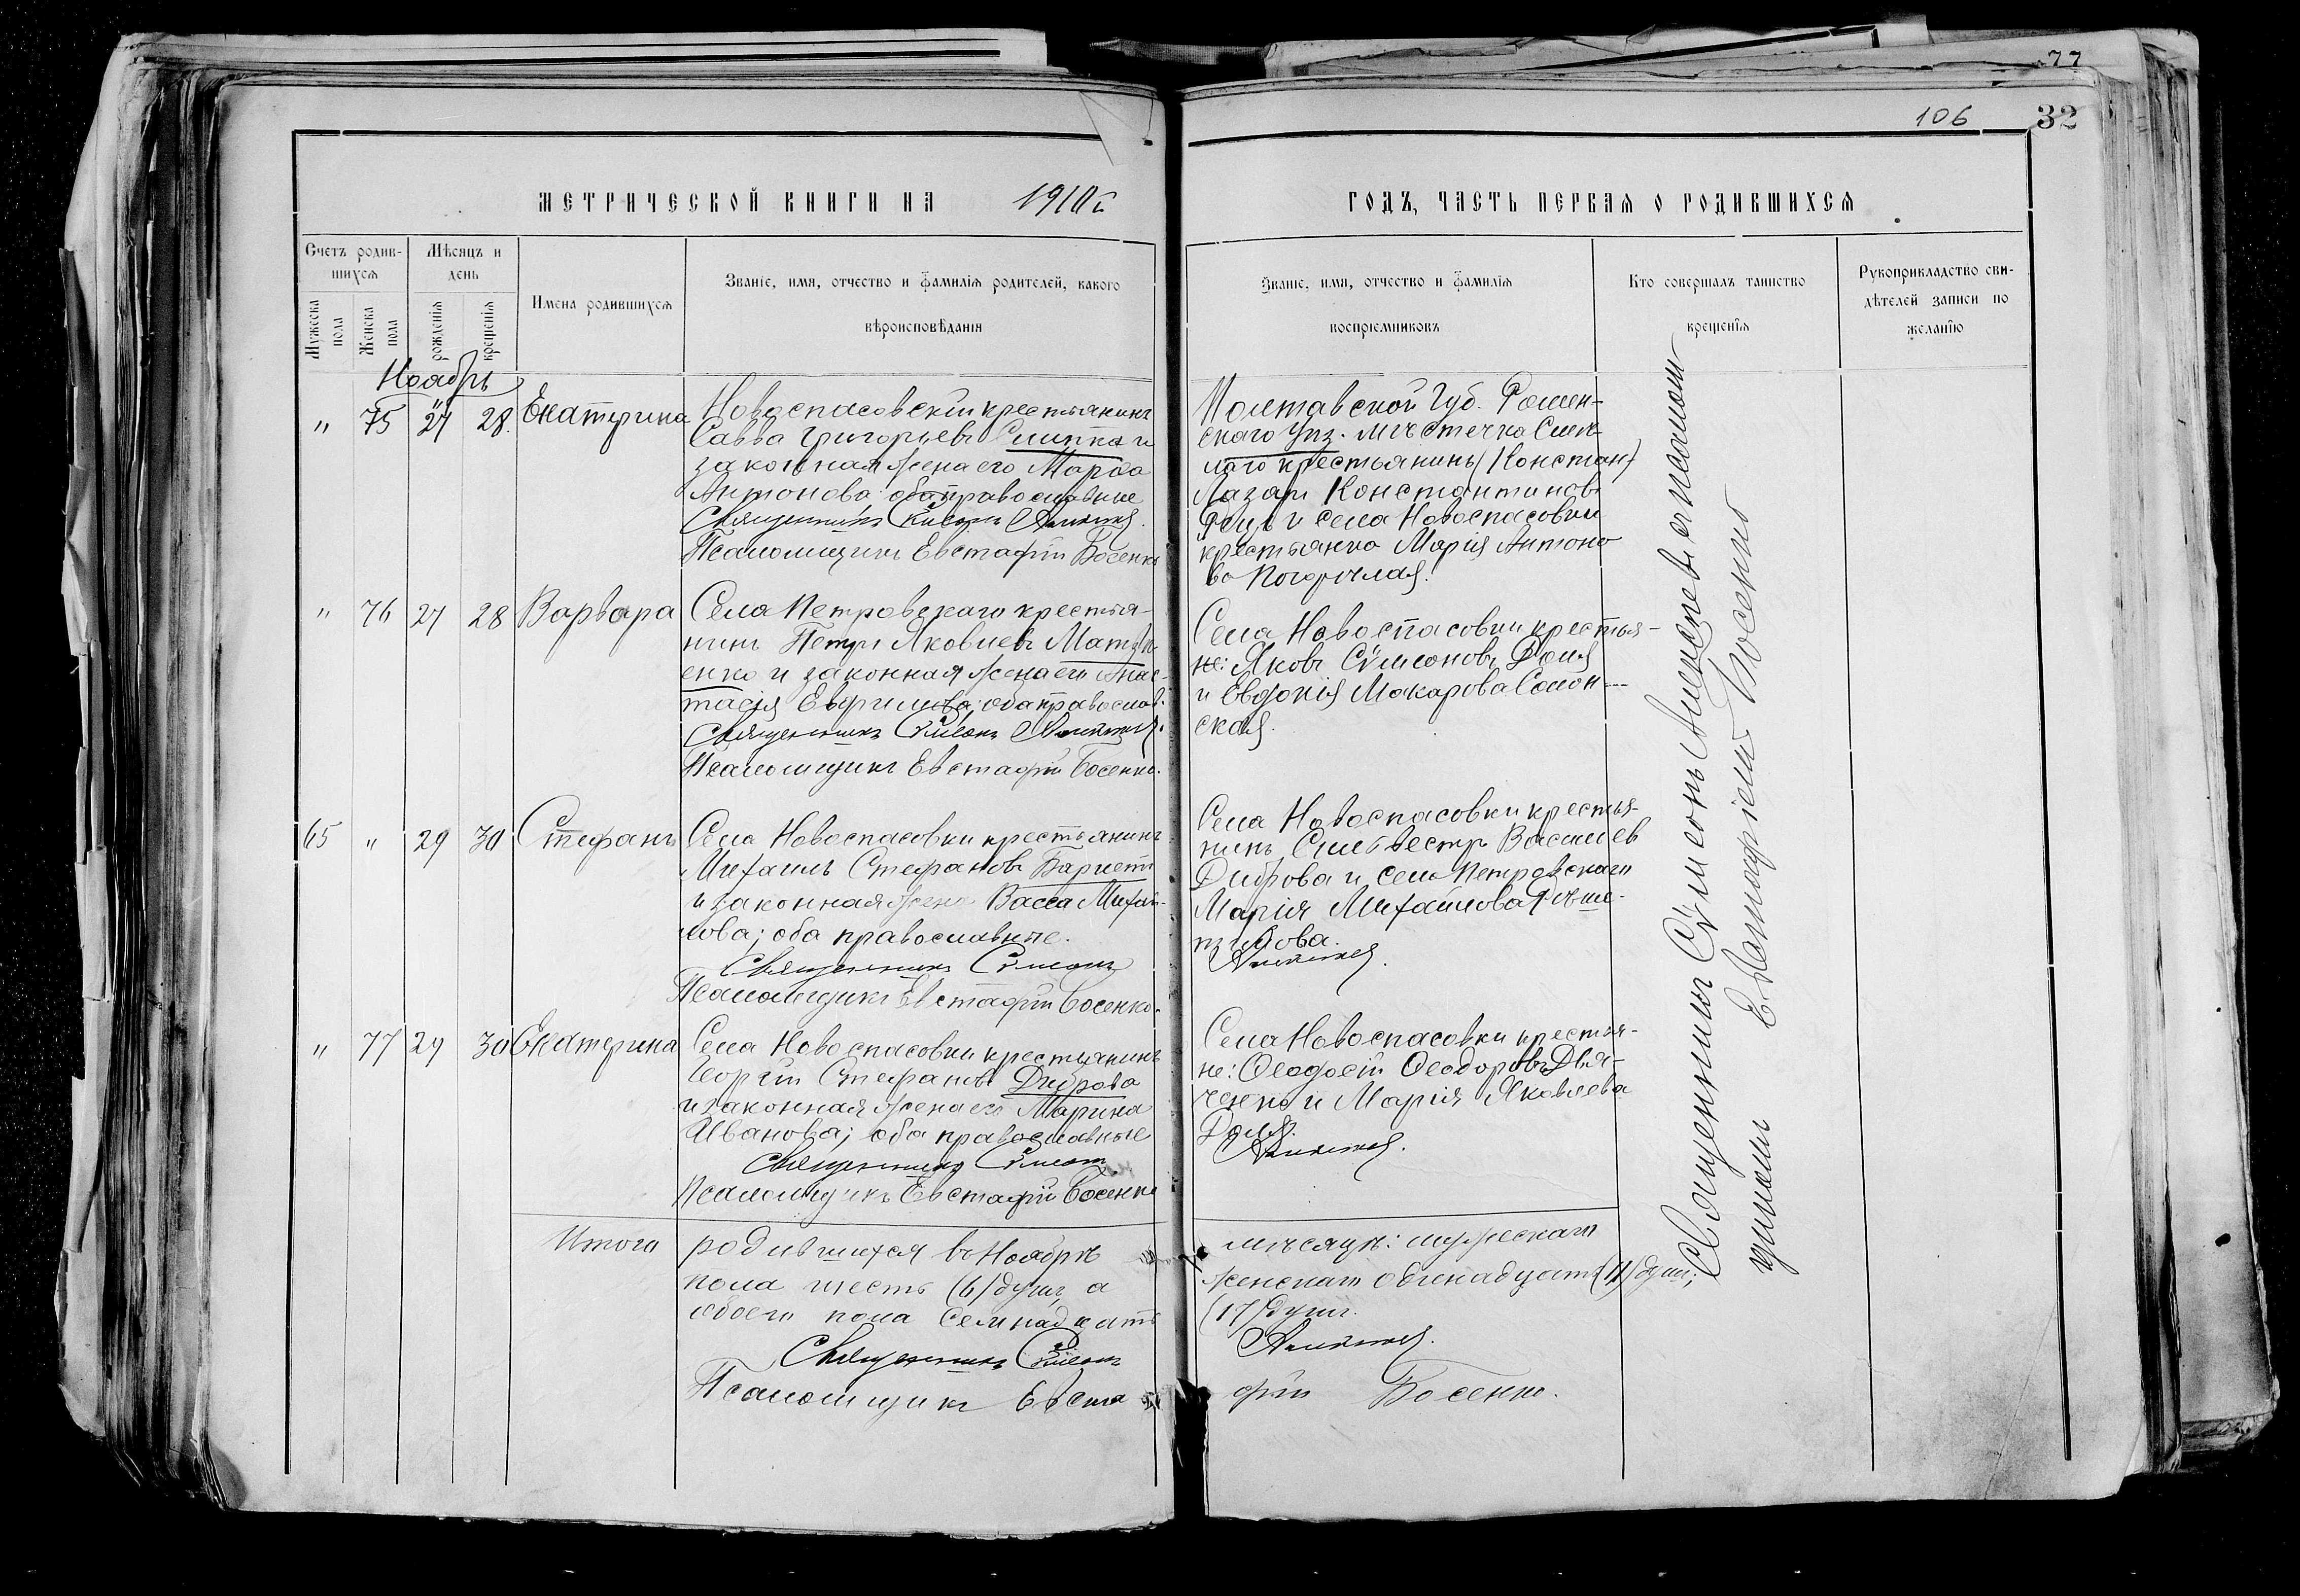 77
106 32
МЕТРИЧЕСКОЙ КНИГИ НА 1910й ГОДЪ, ЧАСТЬ ПЕРВАЯ О РОДИВШИХСЯ
Счетъ родив-
шихся
Мужеска пола
Женска пола
Мѣсяцъ и
день
рожденія
крещенія
Имена родившихся
Званіе, имя, отчество и фамилія родителей, какого
вѣроисповѣданія
Званіе, имя, отчество и фамилія
воспріемниковъ
Кто совершалъ таинство
крещенія
Рукоприкладство сви-
дѣтелей записи по
желанію
Ноябрь
" 75 27 28. Екатерина
Новоспасовскій крестьянинъ
Савва Григорьевъ Слипка и
законная жена его Марѳа
Антонова; оба православные
Священникъ Сѵмеонъ
Псаломщикъ Евстафій Босенко
Полтавской Губ. Ромен-
скаго Уѣз. мѣстечка Смѣ-
лаго крестьянинъ (Констан)
Лазарь Константиновъ
и села Новоспасовки
крестьянка Марія Антоно
ва Погорѣлая.
" 76 27 28 Варвара
Села Петровскаго крестья-
нинъ Петръ Яковлевъ
енко и законная жена его Анас-
тасія Ефимова; оба православ.
Священникъ Сѵмеонъ
Псаломщикъ Евстафій Босенко.
Села Новоспасовки крестья-
не: Яковъ Сѵмеоновъ Доля
и Евдокія Макарова Солон-
ская.
65 " 29 30 Стефанъ
Села Новоспасовки крестьянинъ
Михаилъ Стефановъ
и законная жена Васса Михай-
лова; оба православные.
Священникъ Сѵмеонъ
Псаломщикъ Евстафій Босенко.
Села Новоспасовки крестья-
нинъ Сильвестръ Васильев
Диброва и села Петровскаго
Марія Михайлова
" 77 29 30 Екатерина
Села Новоспасовки крестьянинъ
Георгій Стефановъ Диброва
и законная жена его Марина
Иванова; оба православные
Священникъ Сѵмеонъ
Псаломщикъ Евстафій Босенко
Села Новоспасовки крестья-
не: Ѳеодосій Ѳеодоровъ Дья-
ченко и Марія Яковлева
Доля.
Итого родившихся въ Ноябрѣ мѣсяцѣ: мужескаго
пола шесть (6) душъ, а женскаго одинадцать (11) душъ;
обоего пола семнадцать (17) душъ.
Священникъ Сѵмеонъ
Псаломщикъ Евстафій Босенко.
Священникъ Сѵмеонъ съ псалом
щикомъ Евстафіемъ Босенко